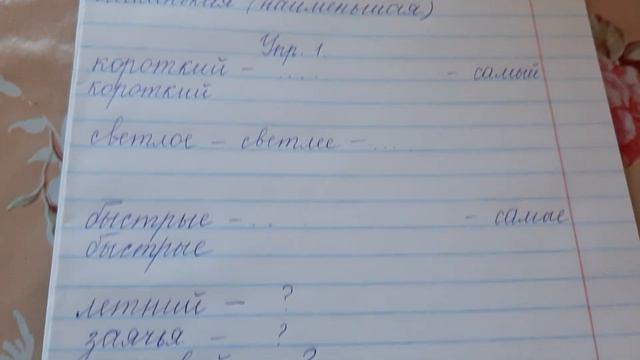 (наименьшая)
Упр. 1.
короткий – .... – самый
короткий
светлое – светлее – ....
быстрые – .. – самые
быстрые
летний – ?
заячья – ?
?